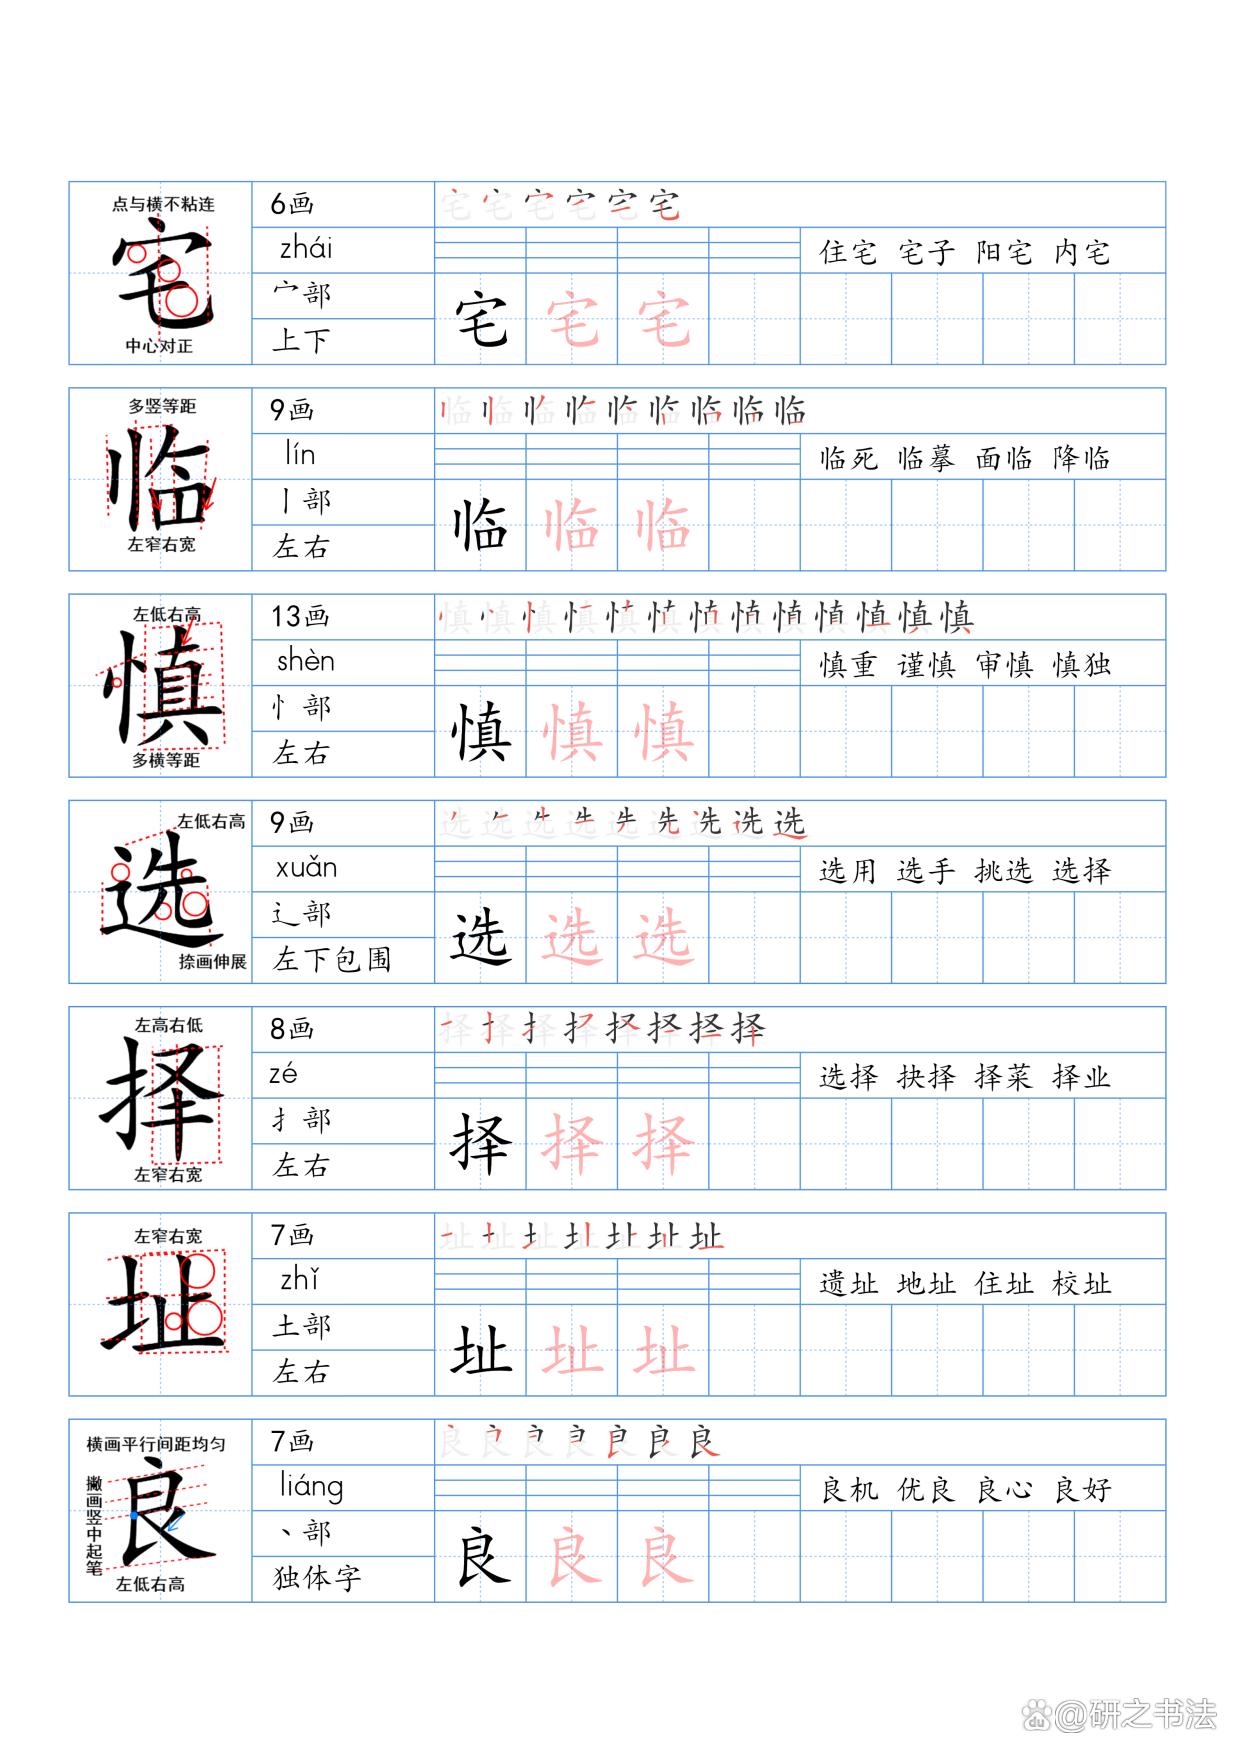 点与横不粘连
宅
中心对正
6画
zhái
宀部
上下
宅 宅 宅 宅 宅 宅
住宅 宅子 阳宅 内宅
宅 宅 宅
多竖等距
临
左窄右宽
9画
lín
丨部
左右
临 临 临 临 临 临 临 临 临
临死 临摹 面临 降临
临 临 临
左低右高
慎
多横等距
13画
shèn
忄部
左右
慎 慎 慎 慎 慎 慎 慎 慎 慎 慎 慎 慎 慎
慎重 谨慎 审慎 慎独
慎 慎 慎
左低右高
选
捺画伸展
9画
xuǎn
辶部
左下包围
选 选 选 选 选 选 选 选 选
选用 选手 挑选 选择
选 选 选
左高右低
择
左窄右宽
8画
zé
扌部
左右
择 择 择 择 择 择 择 择
选择 抉择 择菜 择业
择 择 择
左窄右宽
址
7画
zhǐ
土部
左右
址 址 址 址 址 址 址
遗址 地址 住址 校址
址 址 址
横画平行间距均匀
撇画竖中起笔
良
左低右高
7画
liáng
丶部
独体字
良 良 良 良 良 良 良
良机 优良 良心 良好
良 良 良
du @研之书法